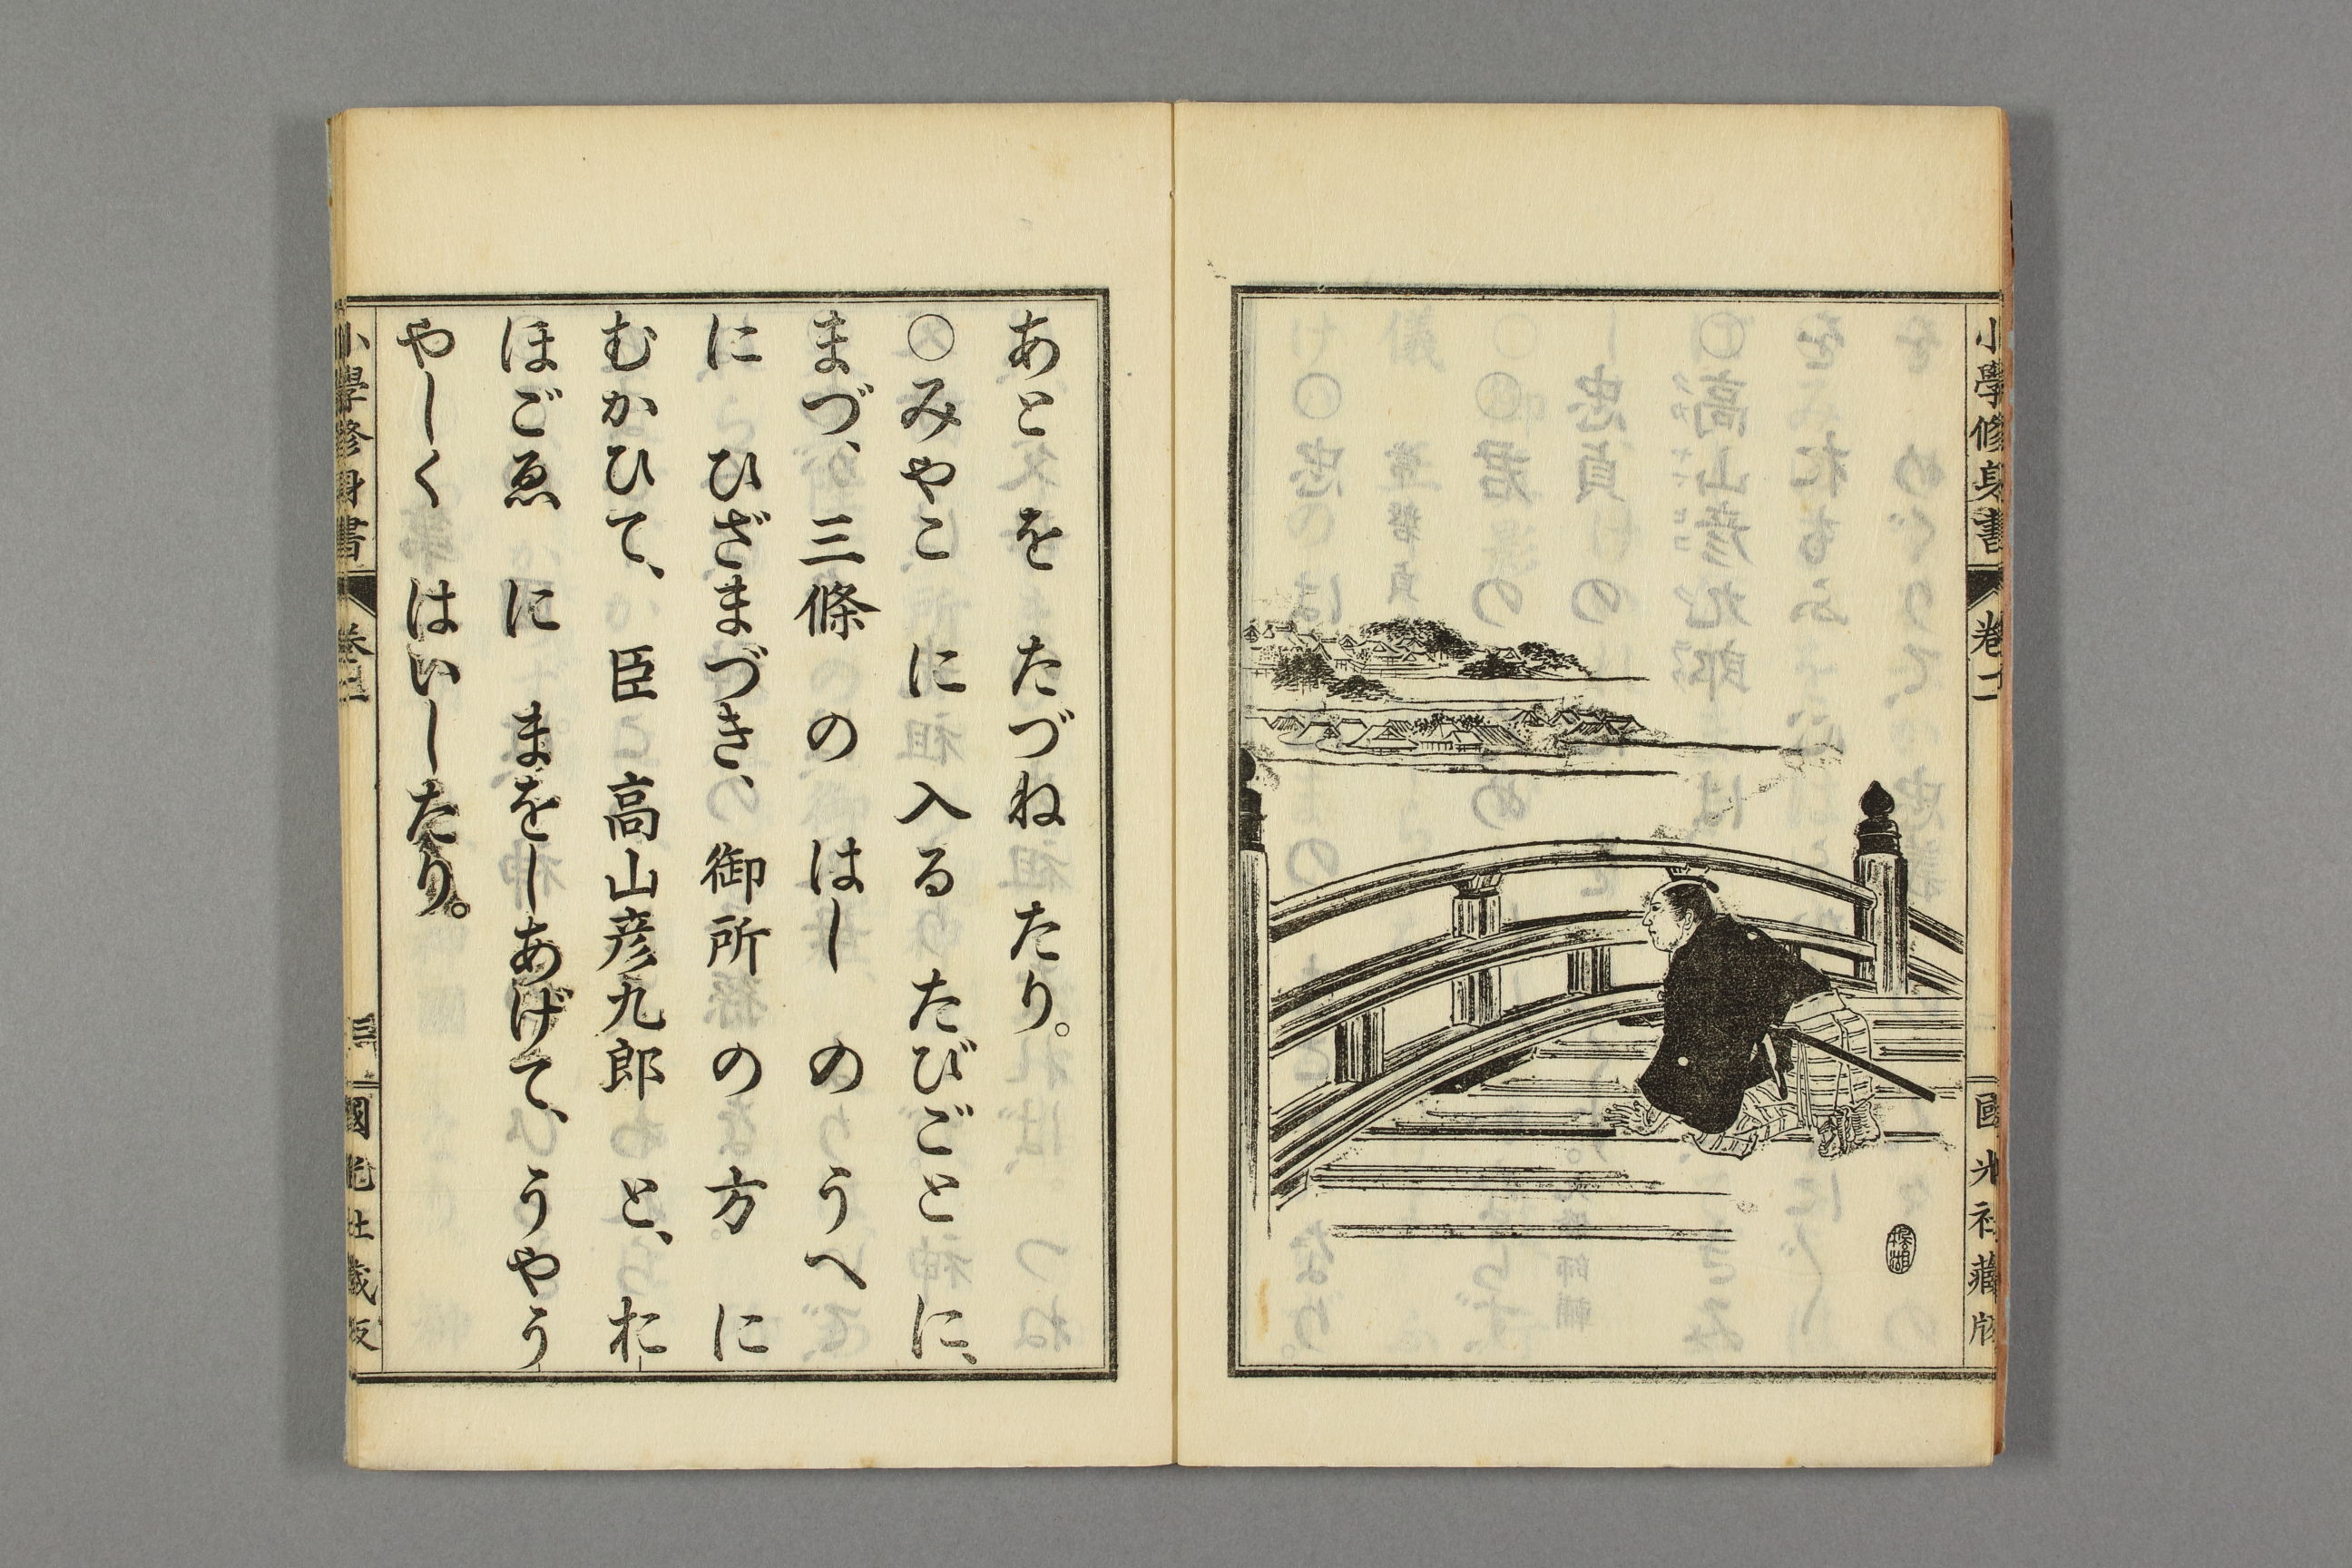 小學修身書 卷二
國光社藏版
あと を たづねたり。
○みやこ に 入る たびごと に、
まづ、三條 の はし の うへ
に ひざまづき、御所 の 方 に
むかひて、臣 高山彦九郎 と、お
ほごゑ に まをしあげて、うやう
やしく はいしたり。
小學修身書 卷二 三 國光社藏版